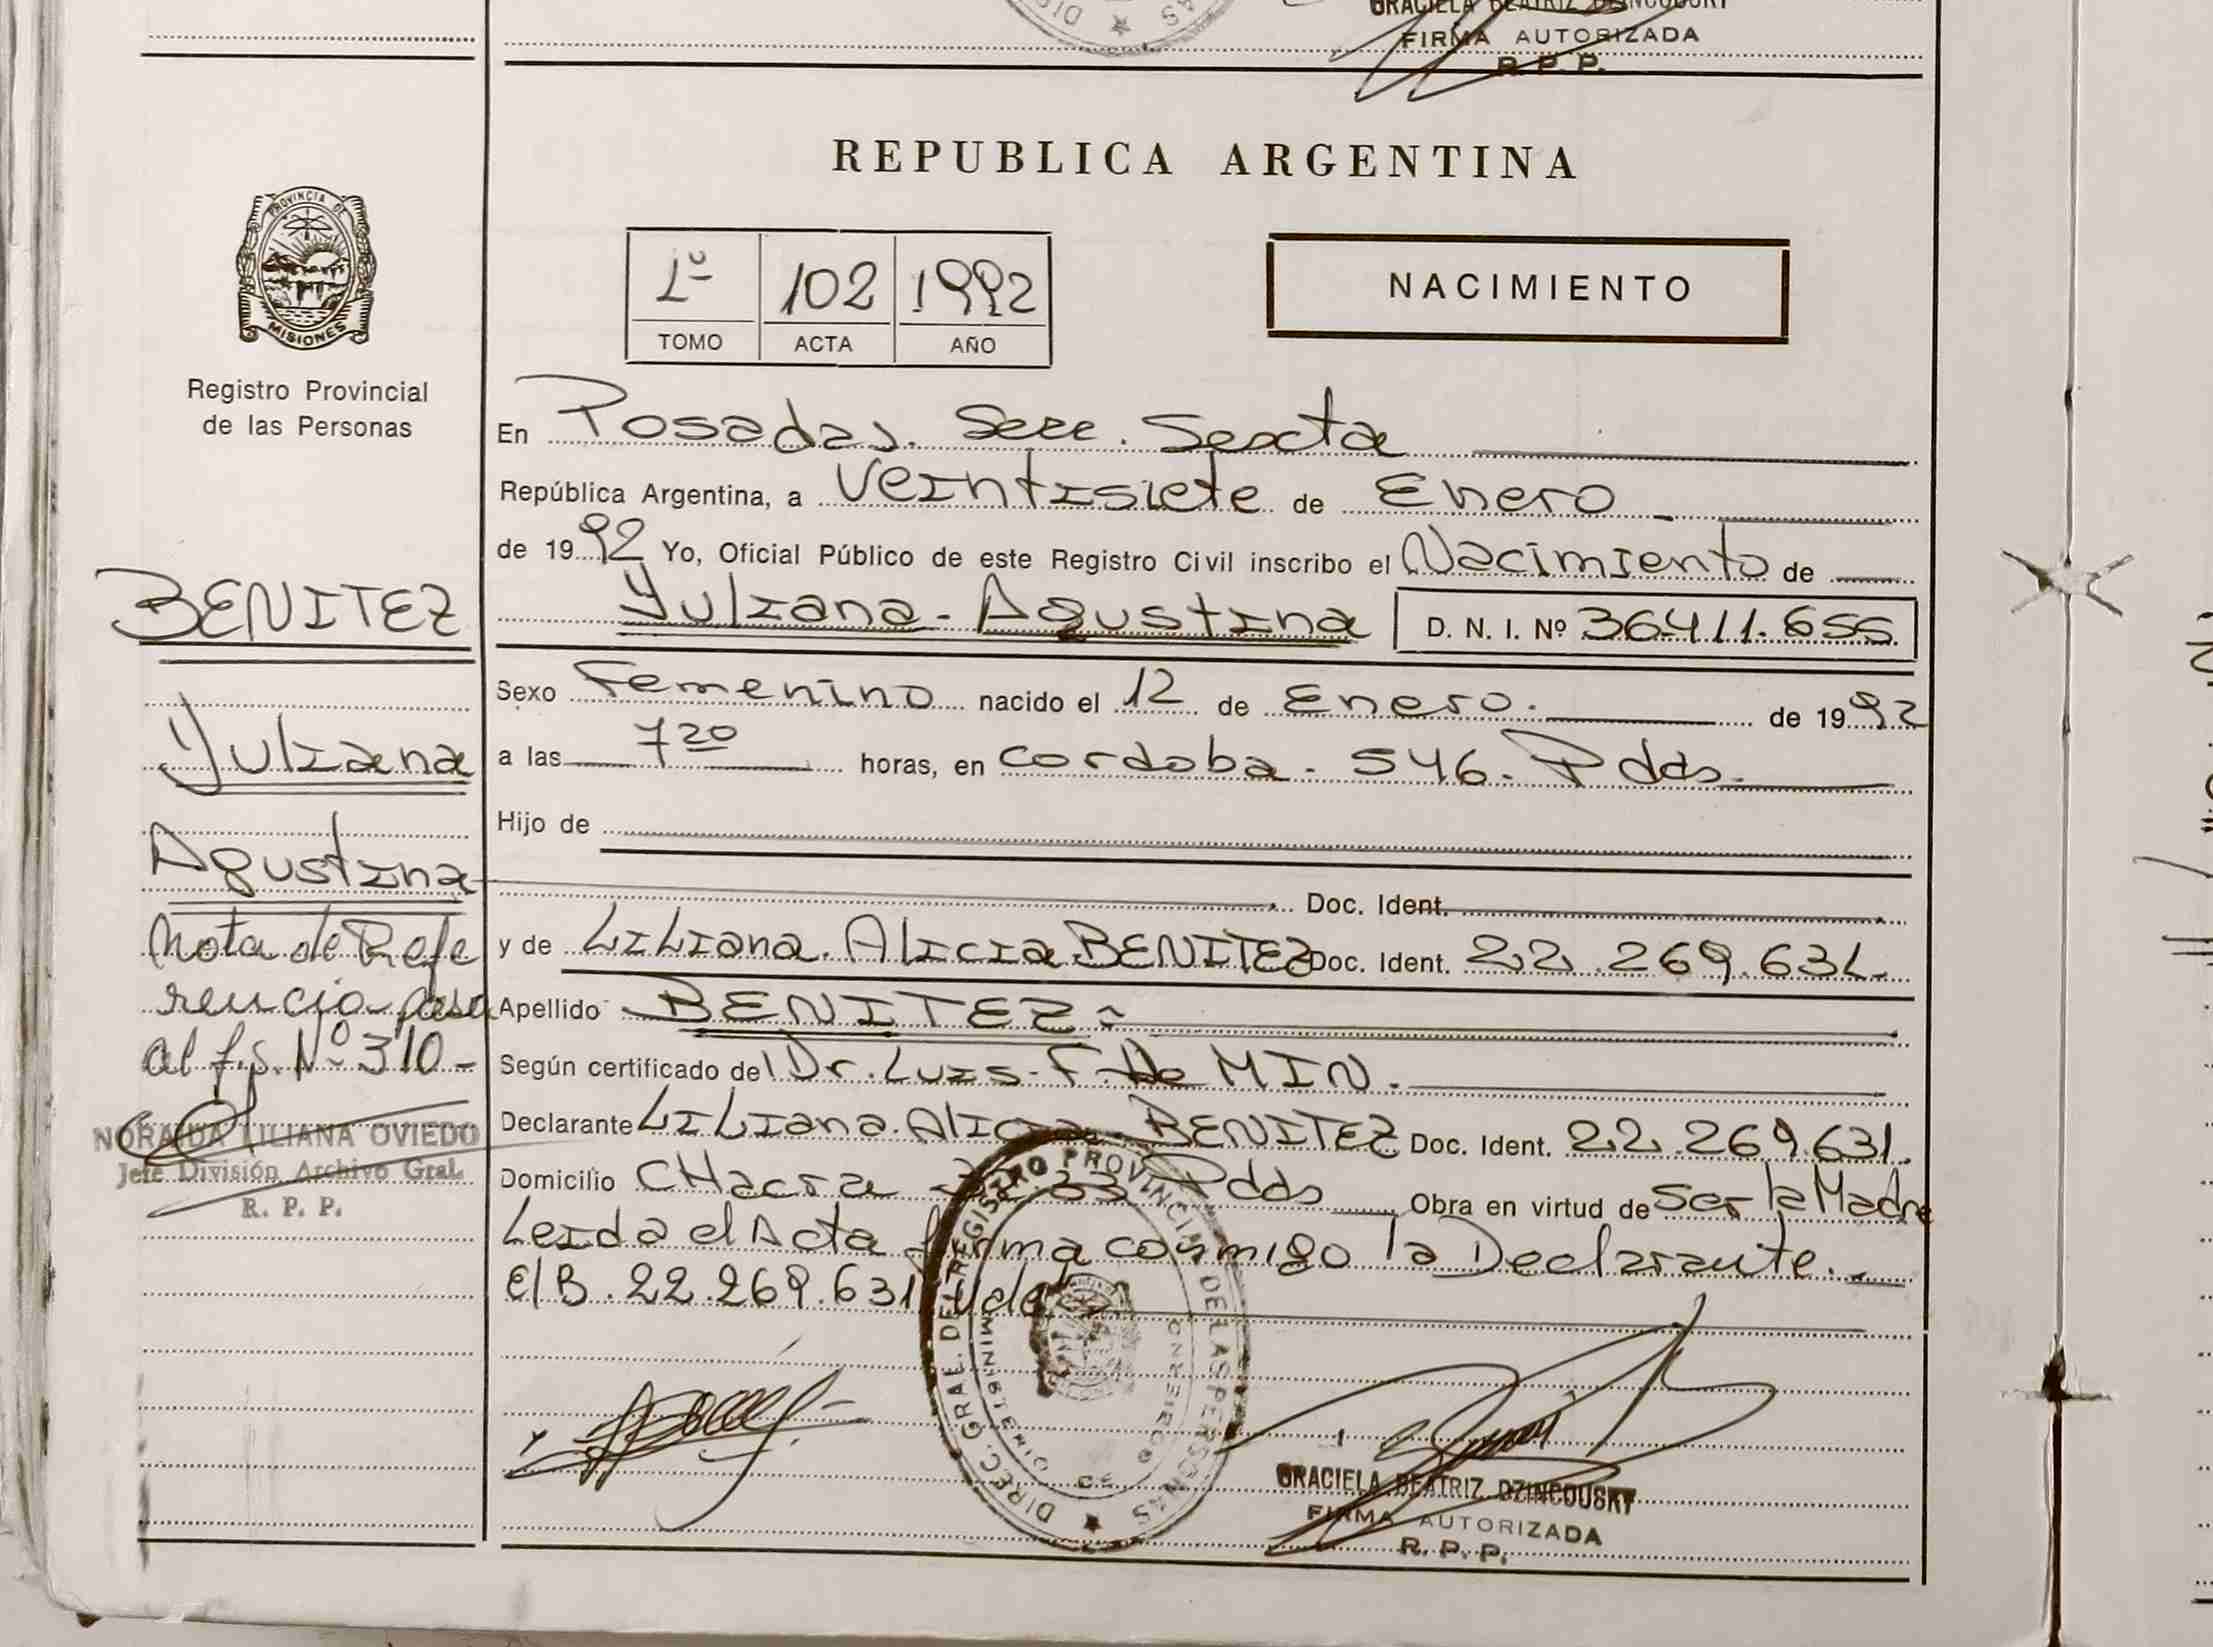 GRACIELA BEATRIZ DZINCOUSKY
FIRMA AUTORIZADA
R. P. P.
REPUBLICA ARGENTINA
PROVINCIA DE
MISIONES
Registro Provincial
de las Personas
1º 102 1992
TOMO ACTA AÑO
NACIMIENTO
En Posadas. Secc. Sexta
República Argentina, a veintisiete de Enero
de 1992 Yo, Oficial Público de este Registro Civil inscribo el Nacimiento de
Yuliana. Agustina D. N. I. Nº 36.411.655
Sexo Femenino nacido el 12 de Enero. de 1992
a las 7 20 horas, en cordoba. 546. Pdds.
Hijo de
Doc. Ident.
y de Liliana. Alicia BENITEZ Doc. Ident. 22.269.631.
Apellido BENITEZ
Según certificado del Dr. Luis. F. de MIN.
Declarante Liliana. Alicia BENITEZ Doc. Ident. 22.269.631.
Domicilio CHacra 32.33 Pdds Obra en virtud de ser la Madre
Leida el Acta firma conmigo la Declarante.
C/B. 22.269.631
BENITEZ
Yuliana
Agustina
Nota de Refe
rencia pasa
al f.s. Nº 310-
NORAIDA LILIANA OVIEDO
Jefe División Archivo Gral.
R. P. P.
DIREC. GRAL. DEL REGISTRO PROVINCIAL DE LAS PERSONAS
MINISTERIO DE GOBIERNO
GRACIELA BEATRIZ DZINCOUSKY
FIRMA AUTORIZADA
R. P. P.